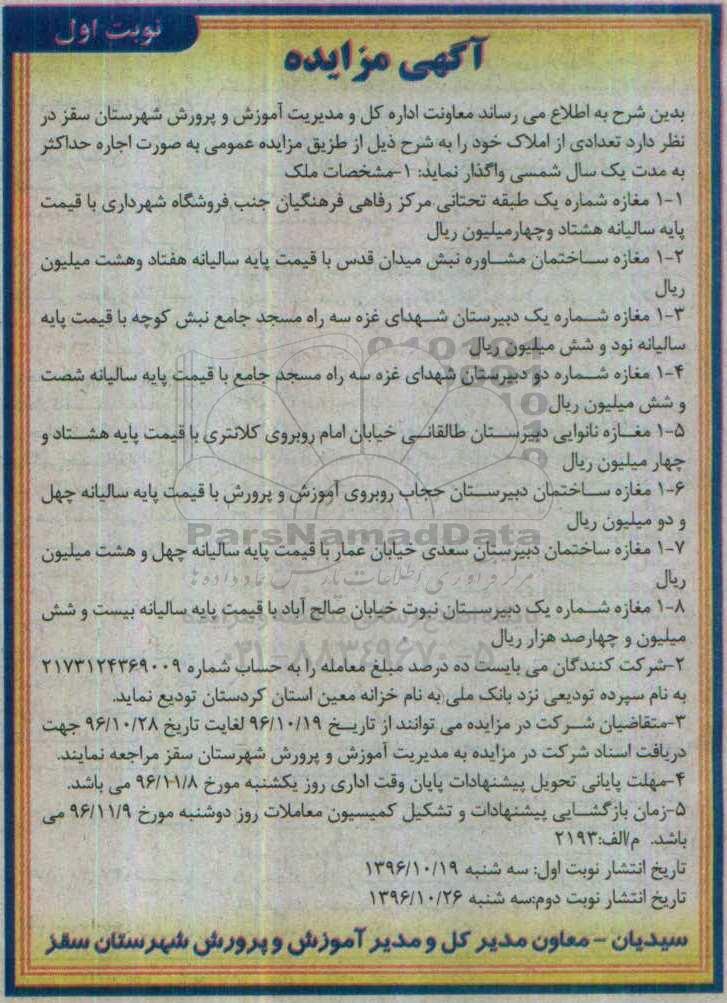 نوبت اول
آگهی مزایده
بدین شرح به اطلاع می رساند معاونت اداره کل و مدیریت آموزش و پرورش شهرستان سقز در
نظر دارد تعدادی از املاک خود را به شرح ذیل از طزیق مزایده عمومی به صورت اجاره حداکثر
به مدت یک سال شمسی واگذار نماید: ۱-مشخصات ملک
۱-۱ مغازه شماره یک طبقه تحتانی مرکز رفاهی فرهنگیان جنب فروشگاه شهرداری با قیمت
پایه سالیانه هشتاد وچهارمیلیون ریال
۱-۲ مغازه ساختمان مشاوره نبش میدان قدس با قیمت پایه سالیانه هفتاد وهشت میلیون
ریال
۱-۳ مغازه شماره یک دبیرستان شهدای غزه سه راه مسجد جامع نبش کوچه با قیمت پایه
سالیانه نود و شش میلیون ریال
۱-۴ مغازه شماره دو دبیرستان شهدای غزه سه راه مسجد جامع با قیمت پایه سالیانه شصت
و شش میلیون ریال
۱-۵ مغازه نانوایی دبیرستان طالقانی خیابان امام روبروی کلانتری با قیمت پایه هشتاد و
چهار میلیون ریال
۱-۶ مغازه ساختمان دبیرستان حجاب روبروی آموزش و پرورش با قیمت پایه سالیانه چهل
و دو میلیون ریال
ParsNamadData
۱-۷ مغازه ساختمان دبیرستان سعدی خیابان عمار با قیمت پایه سالیانه چهل و هشت میلیون
ریال
مرکز فرآوری اطلاعات پارس نماد داده ها
۱-۸ مغازه شماره یک دبیرستان نبوت خیابان صالح آباد با قیمت پایه سالیانه بیست و شش
میلیون و چهارصد هزار ریال
۰۲۱-۸۸۳۴۹۶۷۰-۵
۲-شرکت کنندگان می بایست ده درصد مبلغ معامله را به حساب شماره ۲۱۷۳۱۲۴۳۶۹۰۰۹
به نام سپرده تودیعی نزد بانک ملی به نام خزانه معین استان کردستان تودیع نماید.
۳-متقاضیان شرکت در مزایده می توانند از تاریخ ۹۶/۱۰/۱۹ لغایت تاریخ ۹۶/۱۰/۲۸ جهت
دریافت اسناد شرکت در مزایده به مدیریت آموزش و پرورش شهرستان سقز مراجعه نمایند.
۴-مهلت پایانی تحویل پیشنهادات پایان وقت اداری روز یکشنبه مورخ ۹۶/۱۱/۸ می باشد.
۵-زمان بازگشایی پیشنهادات و تشکیل کمیسیون معاملات روز دوشنبه مورخ ۹۶/۱۱/۹ می
باشد. م/الف:۲۱۹۳
تاریخ انتشار نوبت اول: سه شنبه ۱۳۹۶/۱۰/۱۹
تاریخ انتشار نوبت دوم:سه شنبه ۱۳۹۶/۱۰/۲۶
سیدیان - معاون مدیر کل و مدیر آموزش و پرورش شهرستان سقز